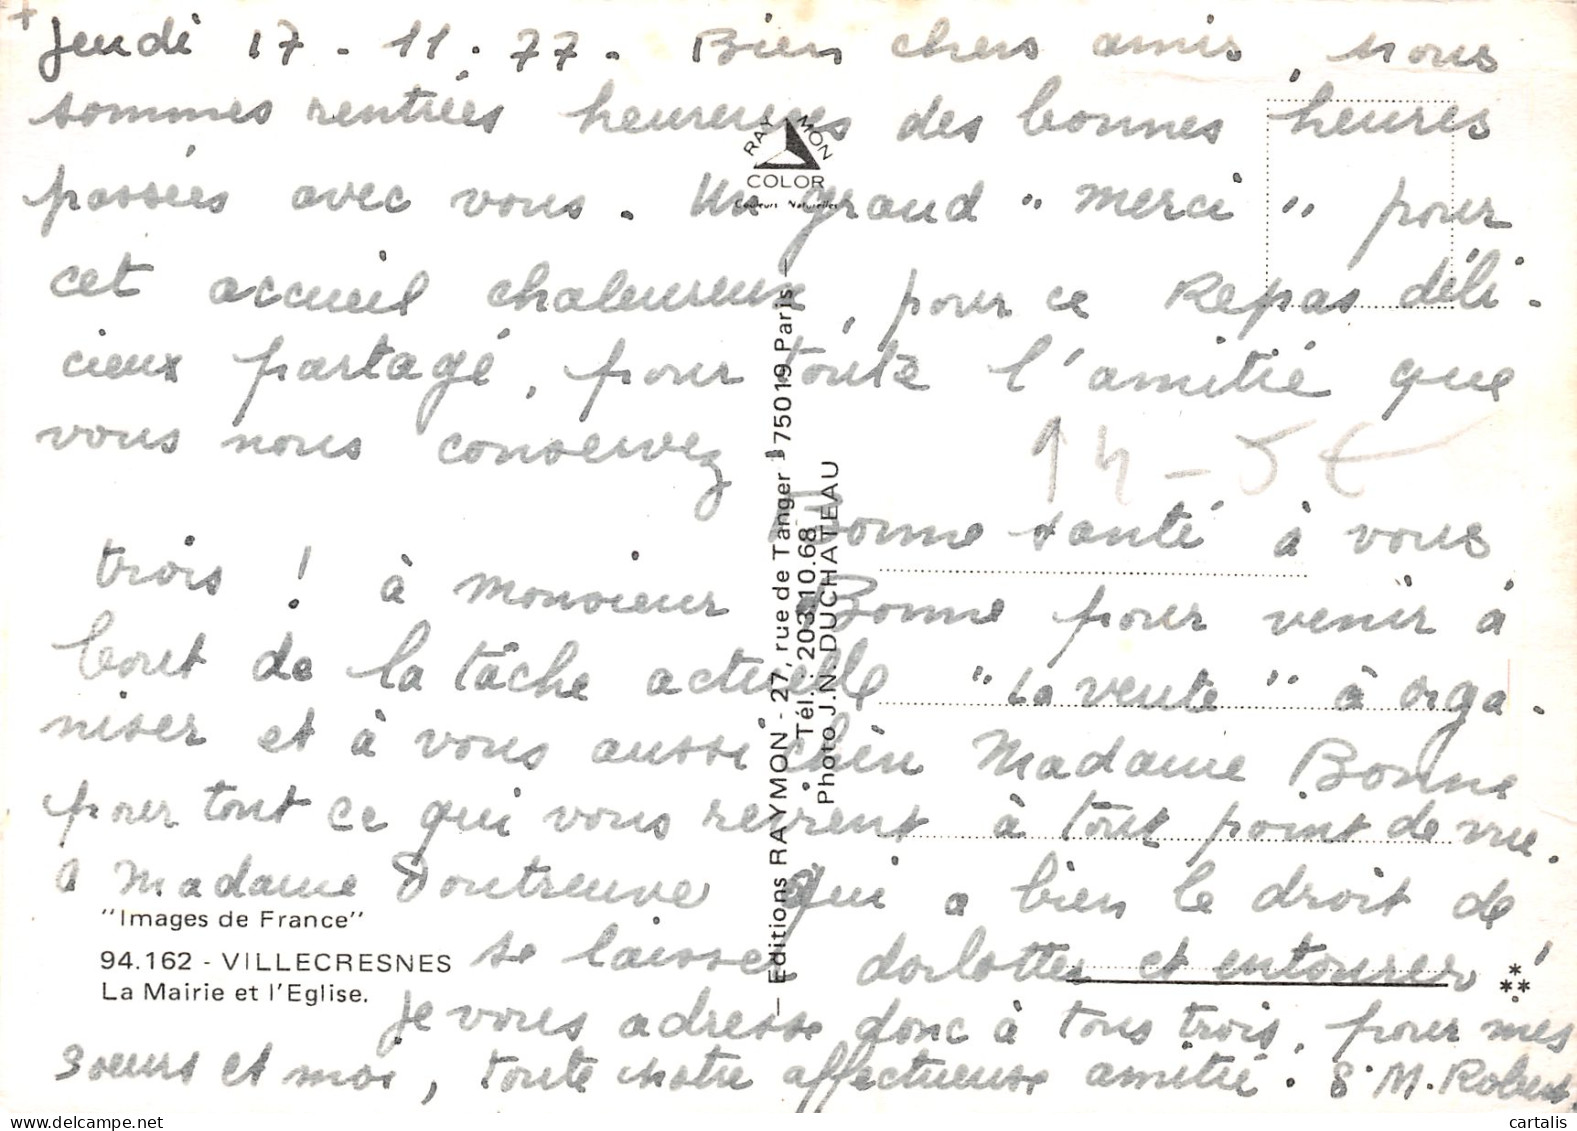 Jeudi 17 - 11 . 77 . Bien chers amis, nous
sommes rentrées heureuses des bonnes heures
passées avec vous. Un grand "merci" pour
cet accueil chaleureux, pour ce Repas déli-
cieux partagé, pour toute l'amitié que
vous nous conservez
Bonne santé à vous
trois ! à monsieur Bonne pour venir à
bout de la tâche actuelle "la vente" à orga-
niser et à vous aussi chère Madame Bonne
pour tout ce qui vous revient à tout point de vue.
à Madame qui a bien le droit de
se laisser dorlotter et entourer !
Je vous adresse donc à tous trois, pour mes
soeurs et moi, toute notre affectueuse amitié. S. M. Robert
14 -
RAYMON
COLOR
Couleurs Naturelles
— Editions RAYMON - 27, rue de Tanger - 75019 Paris —
Tél. : 203.10.68
Photo J.N. DUCHATEAU
"Images de France"
94.162 - VILLECRESNES
La Mairie et l'Eglise.
cartalis